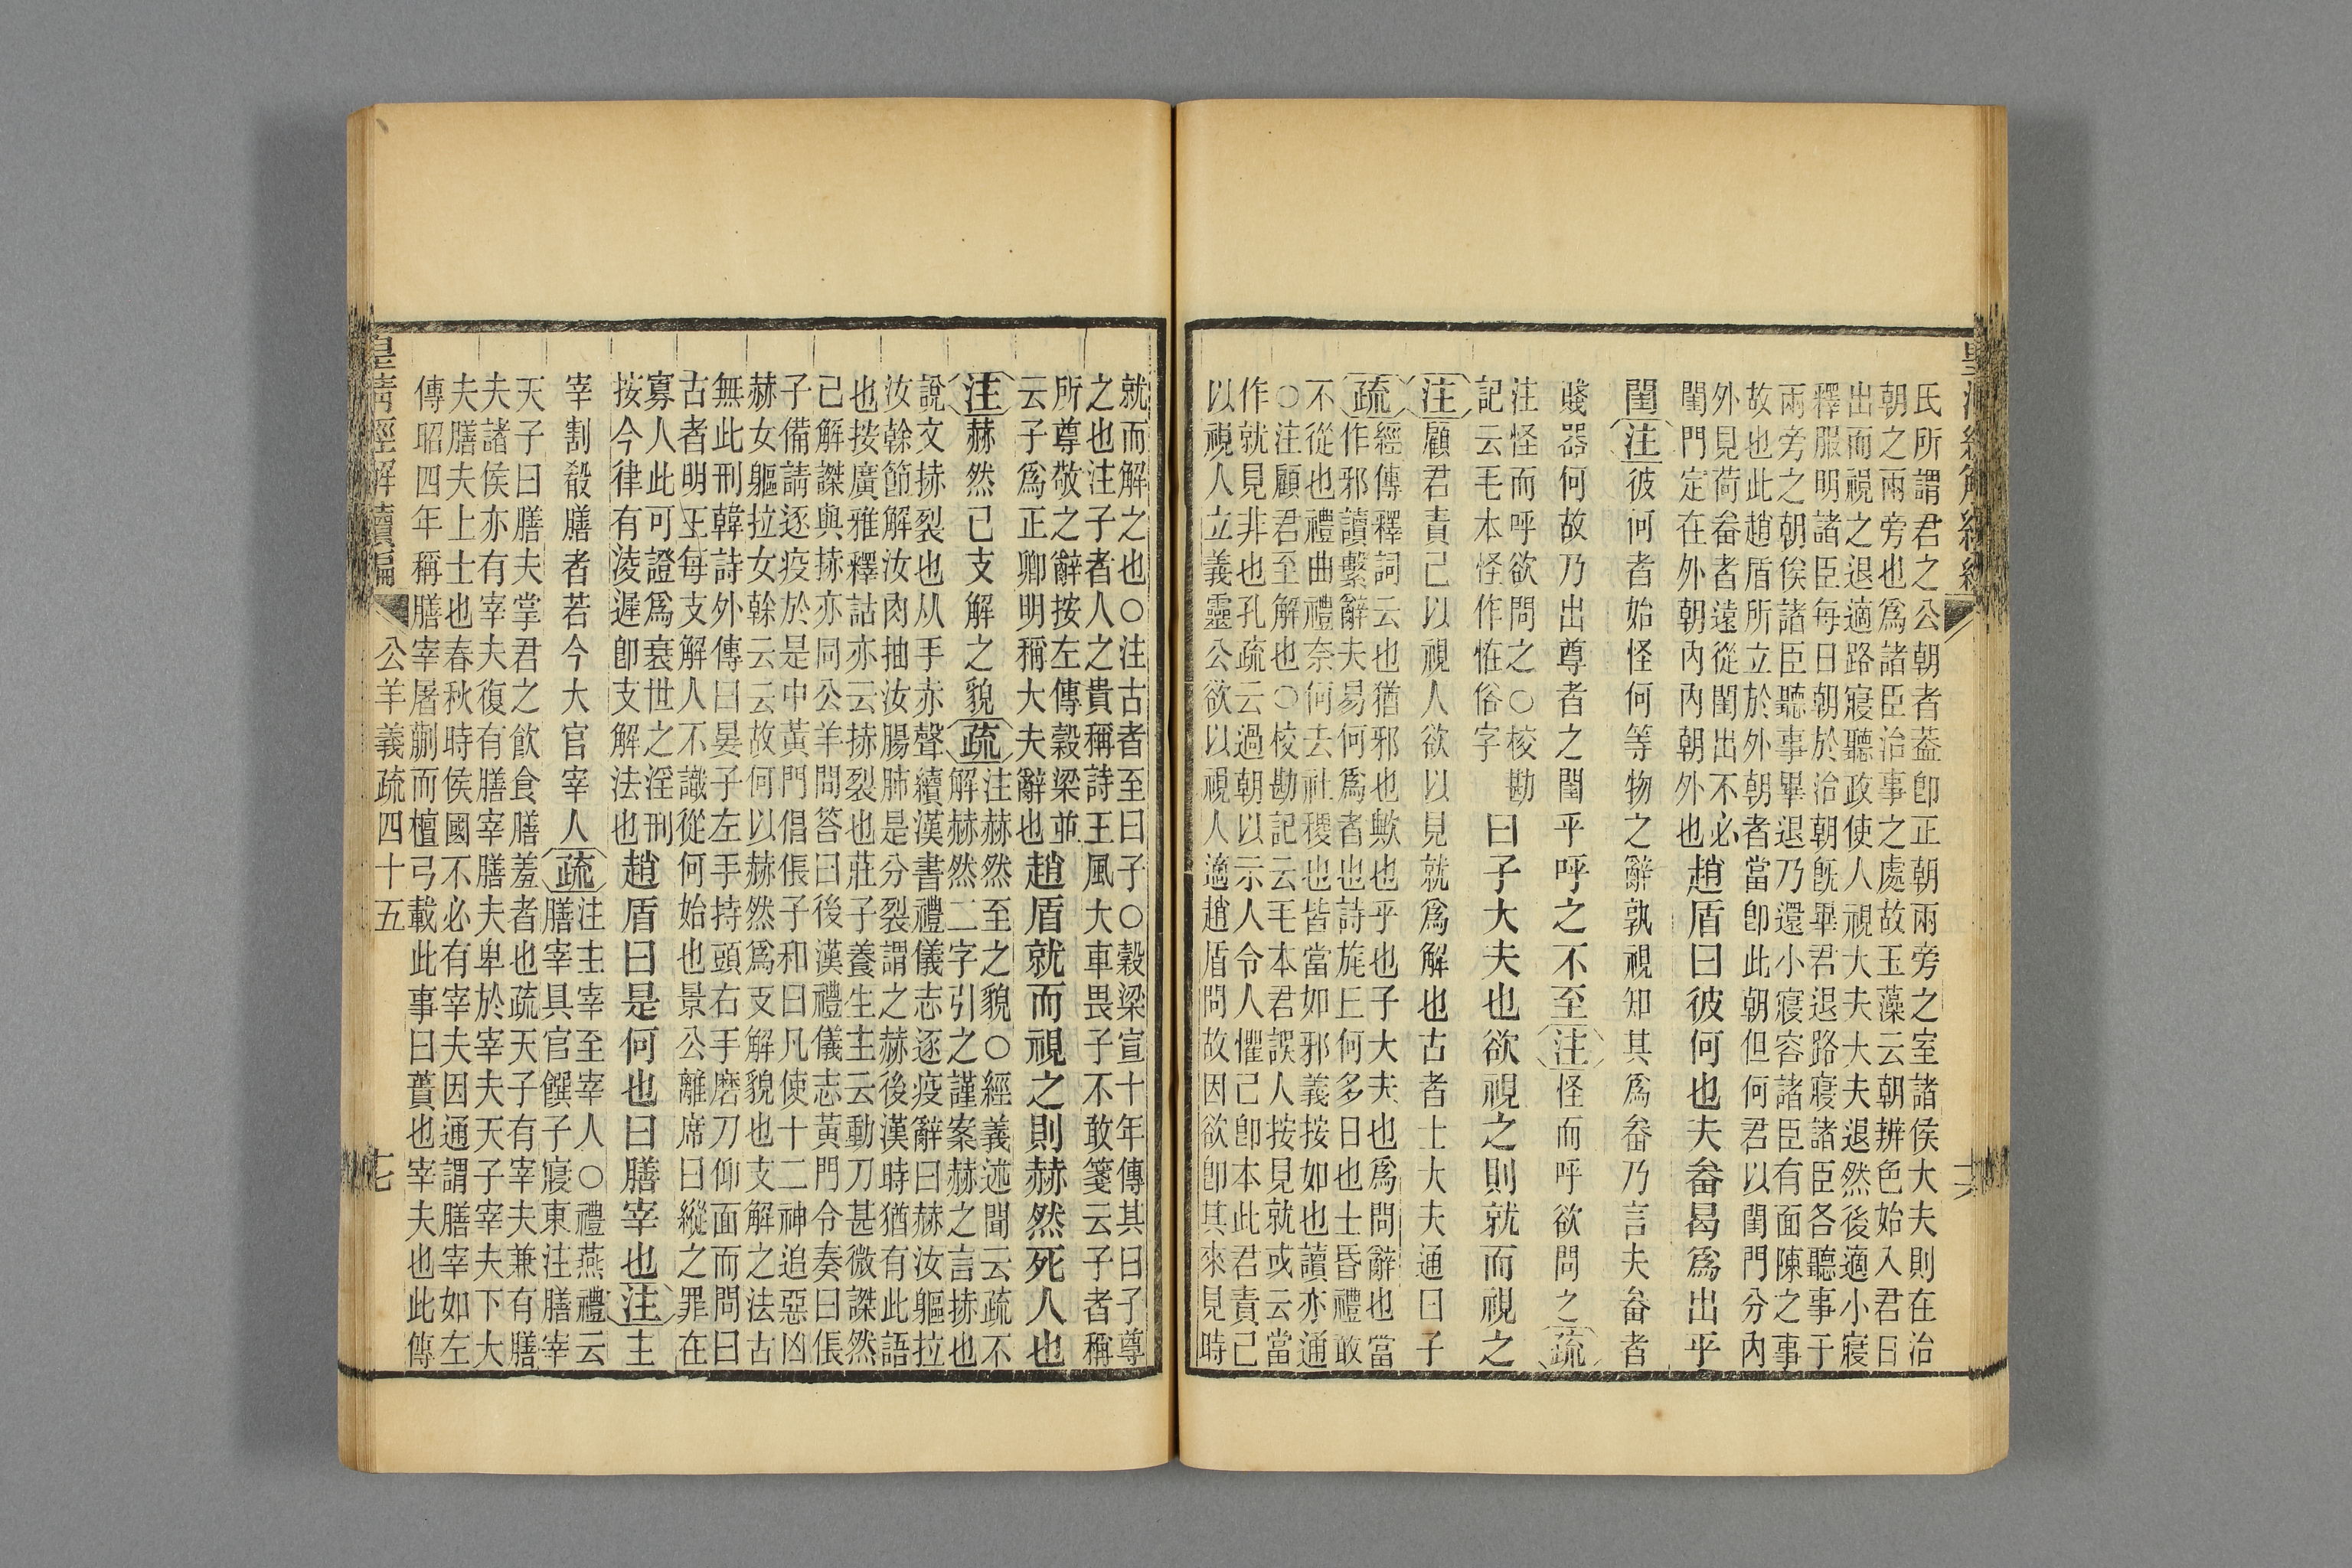 氏所謂君之公朝者葢卽正朝兩旁之室諸侯大夫則在治
朝之兩旁也爲諸臣治事之處故玉藻云朝辨色始入君日
出而視之退適路寢聽政使人視大夫大夫退然後適小寢
釋服明諸臣每日朝於治朝旣畢君退路寢諸臣各聽事于
兩旁之朝俟諸臣聽事畢退乃還小寢容諸臣有面陳之事
故也此趙盾所立於外朝者當卽此朝但何君以閨門分內
外見荷畚者遠從閨出不必
閨門定在外朝內內朝外也
趙盾曰彼何也夫畚曷爲出乎
閨注彼何者始怪何等物之辭孰視知其爲畚乃言夫畚者
賤器何故乃出尊者之閨乎呼之不至注怪而呼欲問之疏
注怪而呼欲問之○校勘
記云毛本怪作恠俗字
曰子大夫也欲視之則就而視之
注顧君責己以視人欲以見就爲解也古者士大夫通曰子
疏
經傳釋詞云也猶邪也歟也乎也子大夫也爲問辭也當
作邪讀繫辭夫易何爲者也詩旄丘何多日也士昏禮敢
不從也禮曲禮奈何去社稷也皆當如邪義按如也讀亦通
○注顧君至解也○校勘記云毛本君誤人按見就或云當
作就見非也孔疏云過朝以示人令人懼己卽本此君責己
以視人立義靈公欲以視人適趙盾問故因欲卽其來見時
就而解之也○注古者至曰子○穀梁宣十年傳其曰子尊
之也注子者人之貴稱詩王風大車畏子不敢箋云子者稱
所尊敬之辭按左傳穀梁並
云子爲正卿明稱大夫辭也
趙盾就而視之則赫然死人也
注赫然已支解之貌疏
注赫然至之貌○經義述聞云疏不
解赫然二字引之謹案赫之言捇也
說文捇裂也从手赤聲續漢書禮儀志逐疫辭曰赫汝軀拉
汝幹節解汝肉抽汝腸肺是分裂謂之赫後漢時猶有此語
也按廣雅釋詁亦云捇裂也莊子養生主云動刀甚微謋然
已解謋與捇亦同公羊問答曰後漢禮儀志黃門令奏曰侲
子備請逐疫於是中黃門倡侲子和曰凡使十二神追惡凶
赫女軀拉女幹云云故何以赫然爲支解貌也支解之法古
無此刑韓詩外傳曰晏子左手持頭右手磨刀仰面而問曰
古者明王每支解人不識從何始也景公離席曰縱之罪在
寡人此可證爲衰世之淫刑
按今律有淩遲卽支解法也
趙盾曰是何也曰膳宰也注主
宰割殽膳者若今大官宰人疏
注主宰至宰人○禮燕禮云
膳宰具官饌子寢東注膳宰
天子曰膳夫掌君之飮食膳羞者也疏天子有宰夫兼有膳
夫諸侯亦有宰夫復有膳宰膳夫卑於宰夫天子宰夫下大
夫膳夫上士也春秋時侯國不必有宰夫因通謂膳宰如左
傳昭四年稱膳宰屠蒯而檀弓載此事曰蕢也宰夫也此傳
皇淸經解續編
公羊義疏四十五